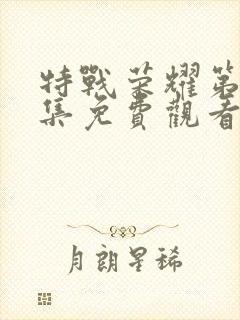 特戰荣耀第
集免費觀看
月朗星稀